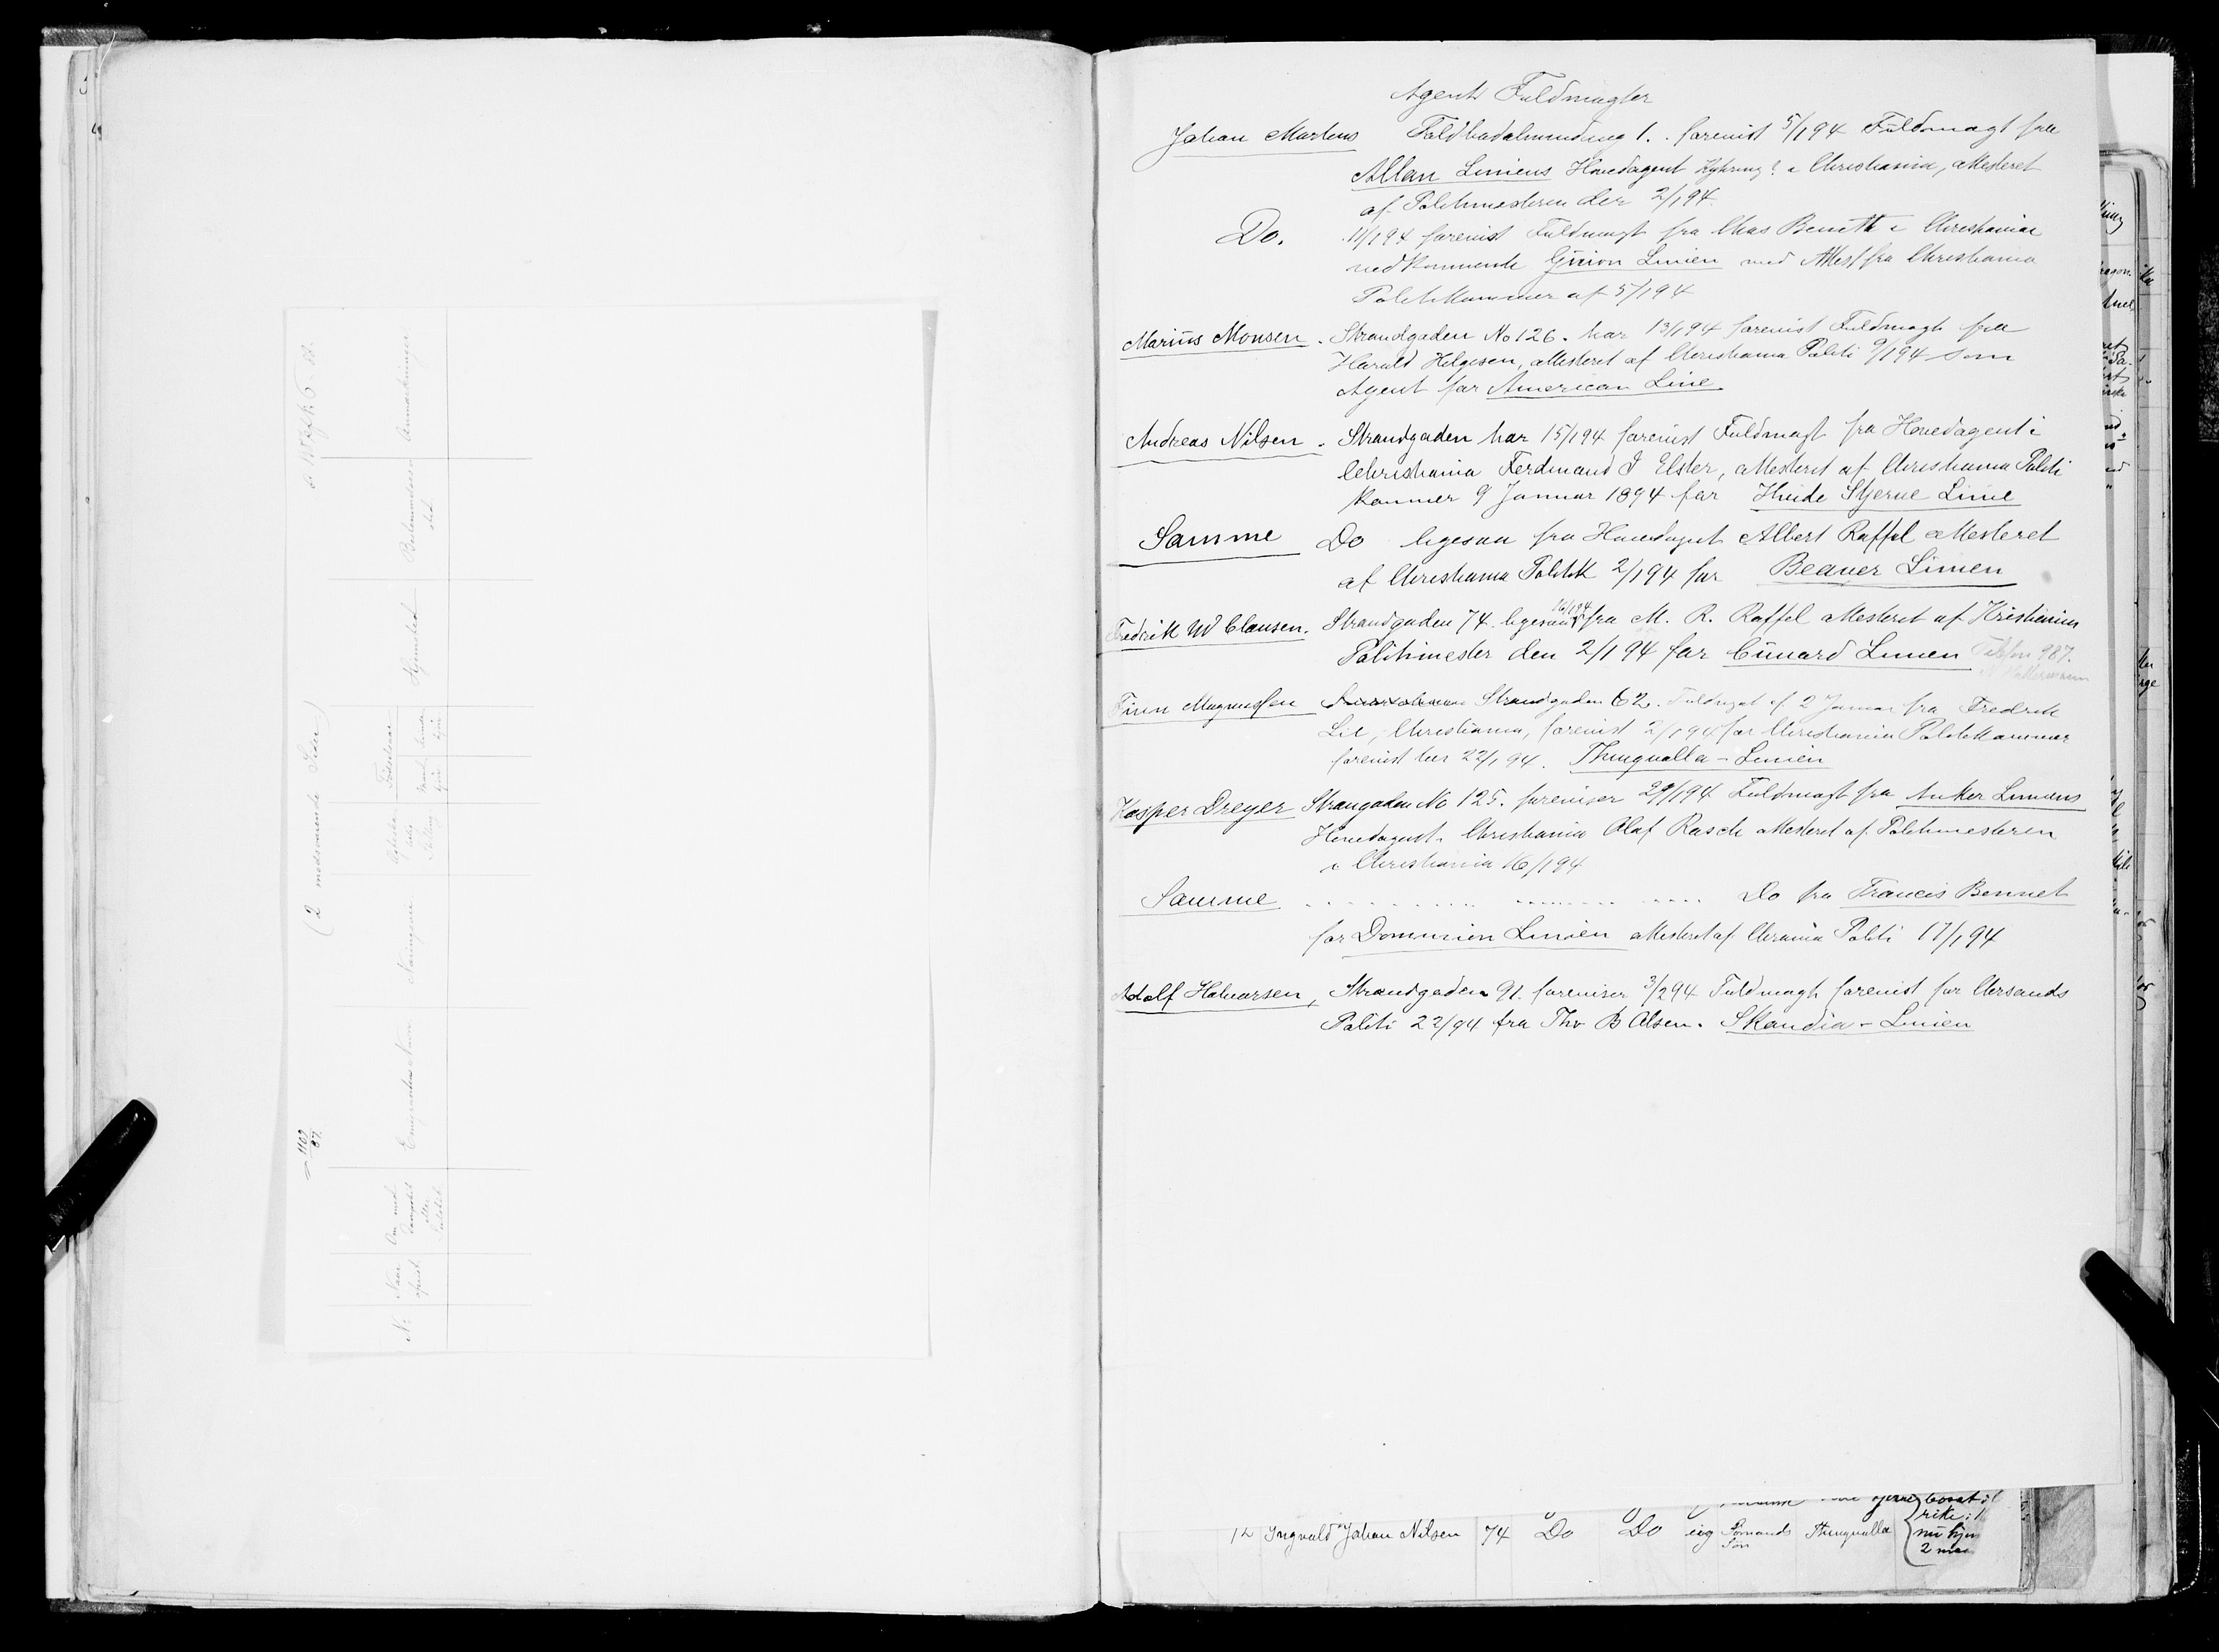 Agent Fuldmagter
Johan Martens Toldbodalmending 1. forevist 5/1 94 Fuldmagt fra
Allan Liniens Hovedagent i Christiania, attesteret
af Politimesteren der 2/1 94.
Do. 11/1 94 forevist Fuldmagt fra Chas Benett i Christiania
vedkommende Guion Linien med Attest fra Christiania
Politikammer af 5/1 94
Marius Monsen. Strandgaden No 126. har 13/1 94 forevist Fuldmagt fra
Harald Helgesen, attesteret af Christiania Politi 9/1 94 som
Agent for American Line
Andreas Nilsen. Strandgaden har 15/1 94 forevist Fuldmagt fra Hovedagent i
Christiania Ferdinand I Elster, attesteret af Christiania Politi
kammer 9 Januar 1894 for Hvide Stjerne Linie
Samme Do ligesaa fra Hovedagent Albert Raffel attesteret
af Christiania Politik 2/1 94 for Beaver Linien
Fredrik W Clausen. Strandgaden 74. ligesaa 16/1 94 fra M. R. Raffel attesteret af Kristiania
Politimester den 2/1 94 for Cunard Linien Telefon 987.
Finn Magnussen Strandgaden 62. Fuldmagt af 2 Januar fra Fredrik
Lie, Christiania, forevist 2/1 94 for Christiania Politikammer
forevist her 22/1 94. Thingvalla-Linien
Kasper Dreyer Strangaden No 125. foreviser 29/1 94 Fuldmagt fra Anker Liniens
Hovedagent i Christiania Olaf Rasch attesteret af Politimesteren
i Christiania 16/1 94
Samme Do fra Francis Bennet
for Dominion Linien attesteret af Chrania Politi 17/1 94
Adolf Halvorsen, Strandgaden 91. foreviser 3/2 94 Fuldmagt forevist for Chrsands
Politi 22/94 fra Thv B Olsen. Skandia-Linien
12 Ingvald Johan Nilsen 74 Do Do ug Sømands Søn Thingvalla
(2 modsvarende Sider)
1102
87.
No
Naar
rejst
Om med
Dampskib
eller
Seilskib
Emigrantens Navn
Næringsvei
Ægteska-
belig
Stilling
Fødselsaar
Mand-
kjøn
Kvinde-
kjøn
Hjemsted
Bestemmelses-
sted
Anmærkninger